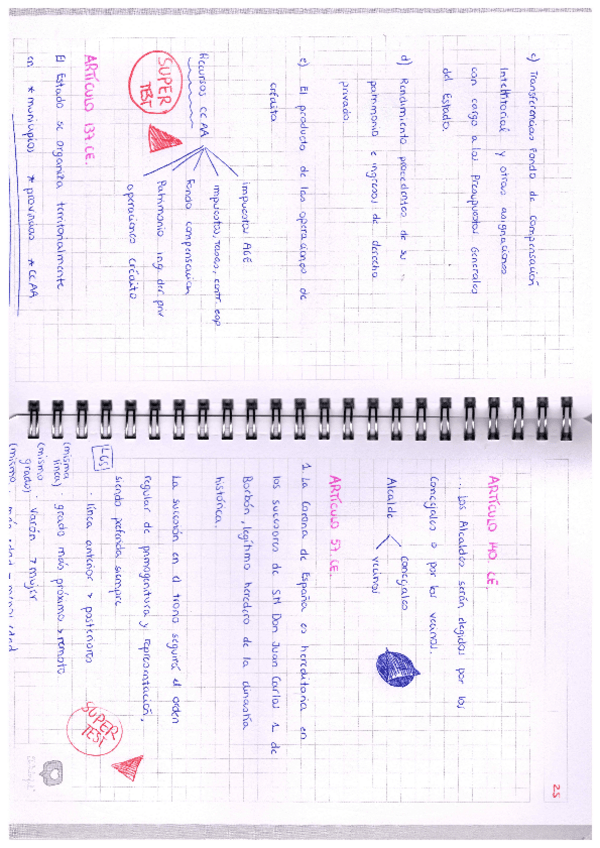 c) Transferencias fondo de compensación
Interterritorial y otras asignaciones
con cargo a los Presupuestos Generales
del Estado.
d) Rendimiento procedentes de su
patrimonio e ingresos de derecho
privado.
e) El producto de las operaciones de
crédito.
Recursos CCAA
impuestos AGE
impuestos, tasas, contr. esp
Fondo compensación
Patrimonio ing. der. priv
operaciones crédito
SUPER
TEST
ARTÍCULO 137. CE.
El Estado se organiza territorialmente
en * municipios * provincias * CCAA
25
ARTÍCULO 140. CE.
... Los Alcaldes serán elegidos por los
Concejales o por los vecinos.
Alcalde
concejales
vecinos
ARTÍCULO 57. CE.
1. La Corona de España es hereditaria en
los sucesores de SM Don Juan Carlos 1. de
Borbón, legítimo heredero de la dinastía
histórica.
La sucesión en el trono seguirá el orden
regular de primogenitura y representación,
siendo preferida siempre
LGS!
· línea anterior > posteriores
(misma línea) grado más próximo > remoto
(mismo grado) · varón > mujer
(mismo
SUPER
TEST